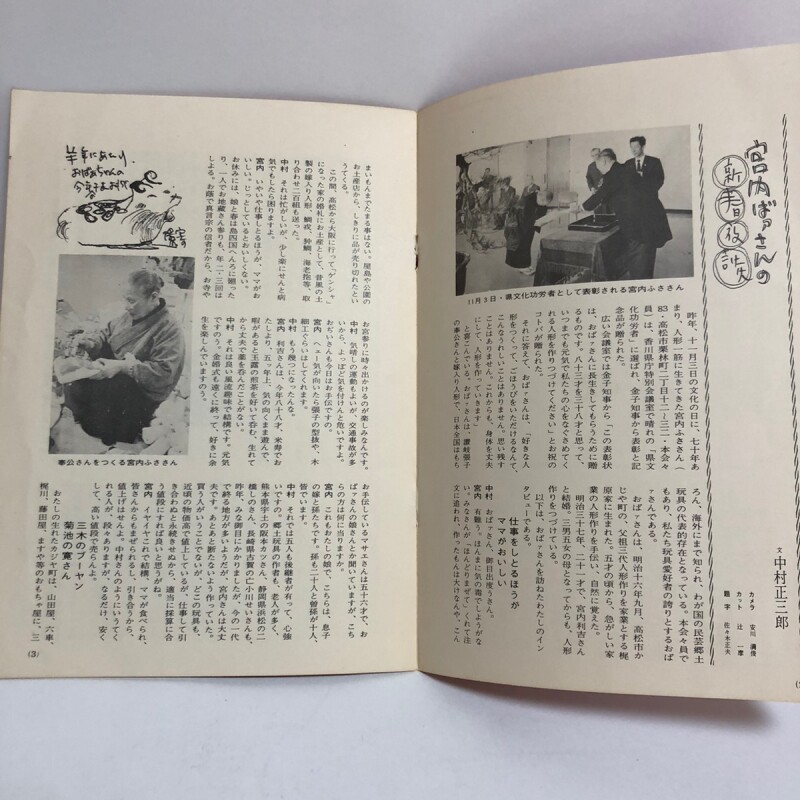 宮内ばァさんの
新春夜話
文 中村正三郎
カメラ 安川 満俊
カット 辻 一摩
題字 佐々木正夫
11月3日・県文化功労者として表彰される宮内ふささん
昨年、十一月三日の文化の日に、七十年あ
まり、人形一筋に生きてきた宮内ふささん(
83・高松市栗林町二丁目十二ー三二・本会々
員)は、香川県庁特別会議室で晴れの「県文
化功労者」に選ばれ、金子知事から表彰と記
念品が贈られた。
広い会議室では金子知事から「この表彰状
は、おばァさんに長生きしてもらうために贈
るものです。八十三才を三十八才と思って、
いつまでも元気で私たちの心をなぐさめてく
れる人形を作りつづけてください」とお祝の
コトバが贈られた。
それに答えて、おばァさんは、「好きな人
形をつくって、ごほうびをいただけるなんて、
こんなうれしいことはありません。思い残す
ことはありません。これからも、身体を丈夫
にして人形を作っていきます。」
と喜こんでいる。おばァさんは、讃岐張子
の奉公さんと嫁入り人形で、日本全国はもち
ろん、海外にまで知られ、わが国の民芸郷土
玩具の代表的存在となっている。本会々員で
もあり、私たち玩具愛好者の誇りとするおば
ァさんである。
おばァさんは、明治十六年九月、高松市か
じや町の、父祖三代人形作りを家業とする梶
原家に生まれた。五才の頃から、急がしい家
業の人形作りを手伝い、自然に覚えた。
明治三十七年、二十一才で、宮内利吉さん
と結婚。三男五女の母となってからも、人形
作りをつづけている。
以下は、おばァさんを訪ねたわたしのイン
タビューである。
仕事をしとるほうが
ママがおいしい
中村 おばァさん、御目出度うさん。
宮内 有難う。ほんまに気の毒でしようがな
い。みなさんが「ほんどりまぜて」くれて注
文に追われ、作ったもんは大けなもんや、こん
まいもんまでたまる事はない。屋島や公園の
お土産店から、しきりに品が売り切れたとい
うてくる。
この間、高松から大阪に行って「ゲンシャ」
になった家の婚礼にお土産として、昔風の土
製の嫁入り人形、鯛戎、狆鯛、海老抱等、取
り合わせ二百組も送った。
中村 それは忙がしいが、少し楽にせんと病
気でもしたら困りますよ。
宮内 いやいや仕事しとるほうが、ママがお
いしい。じっとしているとおいしくない。
お休みには、娘と春は島四国へんろに廻った
り、一人でお地蔵さん参りも、年二・三回す
る。お蔭で真言宗の信者だから、お寺や
お宮参りに時々出かけるのが楽しみなんです。
中村 気晴しの運動もよいが、交通事故が多
いから、よっぽど気を付けんと危いですよ。
おぢいさんも今日はお手伝ですの。
宮内 ヘェー気が向いたら張子の型抜や、木
細工ぐらいはしてくれます。
中村 もう幾つになったんな。
宮内 利吉さんは、今年八十八才、米寿でお
たしより、五ッ年上、気の向くまま遊んで、
暇があると玉露の煎茶を好いて呑む、生れて
から丈夫で薬を呑んだことがない。
中村 それは良い風流趣味で結構です。元気
ですのう。金婚式も遠くに終って、好きに余
生を楽しんでいますのう。
羊年にあたり、
おばあちゃんの
奉公さんをつくる宮内ふささん
お手伝しているマサエさんは五十六才で、お
ばァさんの娘さんとか聞いていますが、こち
らの方は何に当りますか。
宮内 これもわたしの娘で、こちらは、息子
の嫁と孫たちです。孫も二十人と曽孫が十人、
皆でいます。
中村 それでは五人も後継者が有って、心強
いですの。郷土玩具の作者も、老人が多く、
熊本県宇土の阪本カツさん、静岡県浜松の二
橋しのさん、長崎県古賀の亡小川せいさんも、
昨年、みな御目にかかりましたが、今の一代
で終る地方が多いようだが、宮内さんは大丈
夫です。あとあと断たないよう作っていた。
買う人がいうことでないが、どこの玩具も、
近頃の物価高で値上しているが、仕事して引
き合わぬと永続きせぬから、適当に採算に合
う値段にすれば良いと思うがね。
宮内 イヤイヤこれで結構、ママが食べられ、
皆さんからもまぜられるし、引き合うから、
値上げはせんよ。中村さんのようにいうてく
れる人が、段々ありますが、なるだけ、安く
して、高い値段で売らんよ。
三木のブーヤン
菊池の寛さん
おたしの生れたカジヤ町は、山田屋、六車、
梶川、藤田屋、ますや等のおもちゃ屋に、三
(3)